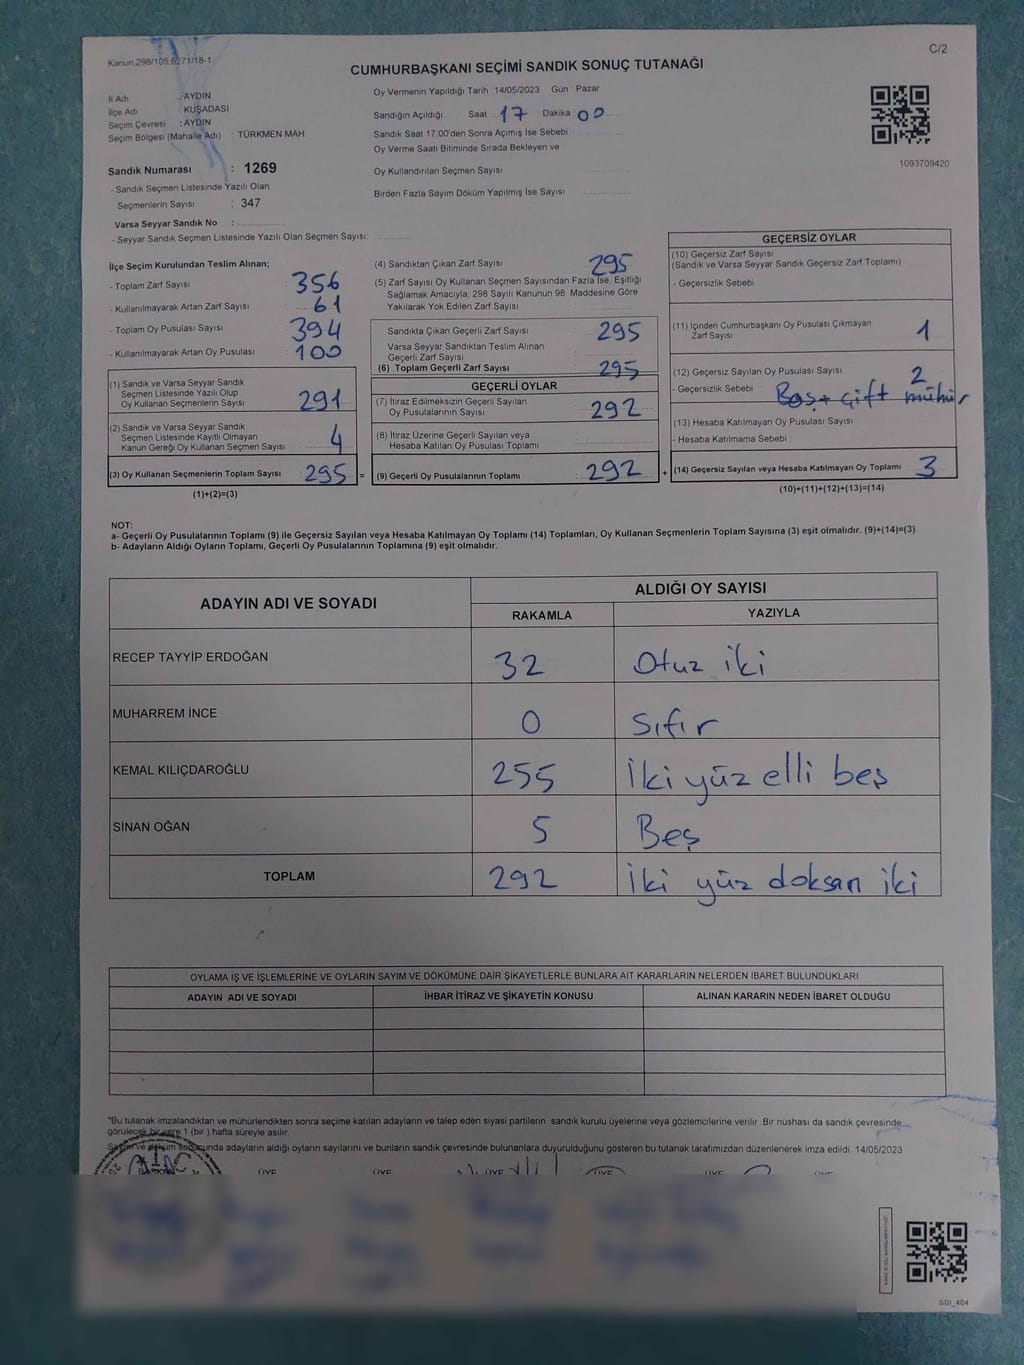 Kanun 298/105,6271/18-1
C/2
CUMHURBAŞKANI SEÇİMİ SANDIK SONUÇ TUTANAĞI
İl Adı : AYDIN
İlçe Adı : KUŞADASI
Seçim Çevresi : AYDIN
Seçim Bölgesi (Mahalle Adı) : TÜRKMEN MAH.
Sandık Numarası : 1269
- Sandık Seçmen Listesinde Yazılı Olan
Seçmenlerin Sayısı : 347
Varsa Seyyar Sandık No :
- Seyyar Sandık Seçmen Listesinde Yazılı Olan Seçmen Sayısı:
Oy Vermenin Yapıldığı Tarih 14/05/2023 Gün : Pazar
Sandığın Açıldığı Saat 17 Dakika 00
Sandık Saat 17.00'den Sonra Açımış İse Sebebi
Oy Verme Saati Bitiminde Sırada Bekleyen ve
Oy Kullandırılan Seçmen Sayısı
Birden Fazla Sayım Döküm Yapılmış İse Sayısı
1093709420
İlçe Seçim Kurulundan Teslim Alınan;
- Toplam Zarf Sayısı : 356
- Kullanılmayarak Artan Zarf Sayısı : 61
- Toplam Oy Pusulası Sayısı : 394
- Kullanılmayarak Artan Oy Pusulası : 100
(1) Sandık ve Varsa Seyyar Sandık
Seçmen Listesinde Yazılı Olup
Oy Kullanan Seçmenlerin Sayısı : 291
(2) Sandık ve Varsa Seyyar Sandık
Seçmen Listesinde Kayıtlı Olmayan
Kanun Gereği Oy Kullanan Seçmen Sayısı : 4
(3) Oy Kullanan Seçmenlerin Toplam Sayısı : 295 =
(1)+(2)=(3)
(4) Sandıktan Çıkan Zarf Sayısı : 295
(5) Zarf Sayısı Oy Kullanan Seçmen Sayısından Fazla İse, Eşitliği
Sağlamak Amacıyla; 298 Sayılı Kanunun 98. Maddesine Göre
Yakılarak Yok Edilen Zarf Sayısı :
Sandıkta Çıkan Geçerli Zarf Sayısı : 295
Varsa Seyyar Sandıktan Teslim Alınan
Geçerli Zarf Sayısı :
(6) Toplam Geçerli Zarf Sayısı : 295
GEÇERLİ OYLAR
(7) İtiraz Edilmeksizin Geçerli Sayılan
Oy Pusulalarının Sayısı : 292
(8) İtiraz Üzerine Geçerli Sayılan veya
Hesaba Katılan Oy Pusulası Toplamı :
(9) Geçerli Oy Pusulalarının Toplamı : 292 +
GEÇERSİZ OYLAR
(10) Geçersiz Zarf Sayısı
(Sandık ve Varsa Seyyar Sandık Geçersiz Zarf Toplamı)
- Geçersizlik Sebebi
(11) İçinden Cumhurbaşkanı Oy Pusulası Çıkmayan
Zarf Sayısı : 1
(12) Geçersiz Sayılan Oy Pusulası Sayısı : 2
- Geçersizlik Sebebi : Boş+ çift mühür
(13) Hesaba Katılmayan Oy Pusulası Sayısı :
- Hesaba Katılmama Sebebi :
(14) Geçersiz Sayılan veya Hesaba Katılmayan Oy Toplamı : 3
(10)+(11)+(12)+(13)=(14)
NOT:
a- Geçerli Oy Pusulalarının Toplamı (9) ile Geçersiz Sayılan veya Hesaba Katılmayan Oy Toplamı (14) Toplamları, Oy Kullanan Seçmenlerin Toplam Sayısına (3) eşit olmalıdır. (9)+(14)=(3)
b- Adayların Aldığı Oyların Toplamı, Geçerli Oy Pusulalarının Toplamına (9) eşit olmalıdır.
ADAYIN ADI VE SOYADI
ALDIĞI OY SAYISI
RAKAMLA YAZIYLA
RECEP TAYYİP ERDOĞAN 32 Otuz iki
MUHARREM İNCE 0 Sıfır
KEMAL KILIÇDAROĞLU 255 İki yüz elli beş
SİNAN OĞAN 5 Beş
TOPLAM 292 İki yüz doksan iki
OYLAMA İŞ VE İŞLEMLERİNE VE OYLARIN SAYIM VE DÖKÜMÜNE DAİR ŞİKAYETLERLE BUNLARA AİT KARARLARIN NELERDEN İBARET BULUNDUKLARI
ADAYIN ADI VE SOYADI İHBAR İTİRAZ VE ŞİKAYETİN KONUSU ALINAN KARARIN NEDEN İBARET OLDUĞU
*Bu tutanak imzalandıktan ve mühürlendikten sonra seçime katılan adayların ve talep eden siyasi partilerin sandık kurulu üyelerine veya gözlemcilerine verilir. Bir nüshası da sandık çevresinde
görülecek bir yere 1 (bir ) hafta süreyle asılır.
Seçim ve döküm sonucunda adayların aldığı oyların sayılarını ve bunların sandık çevresinde bulunanlara duyurulduğunu gösteren bu tutanak tarafımızdan düzenlenerek imza edildi. 14/05/2023
ÜYE ÜYE ÜYE ÜYE ÜYE ÜYE
SSI_404